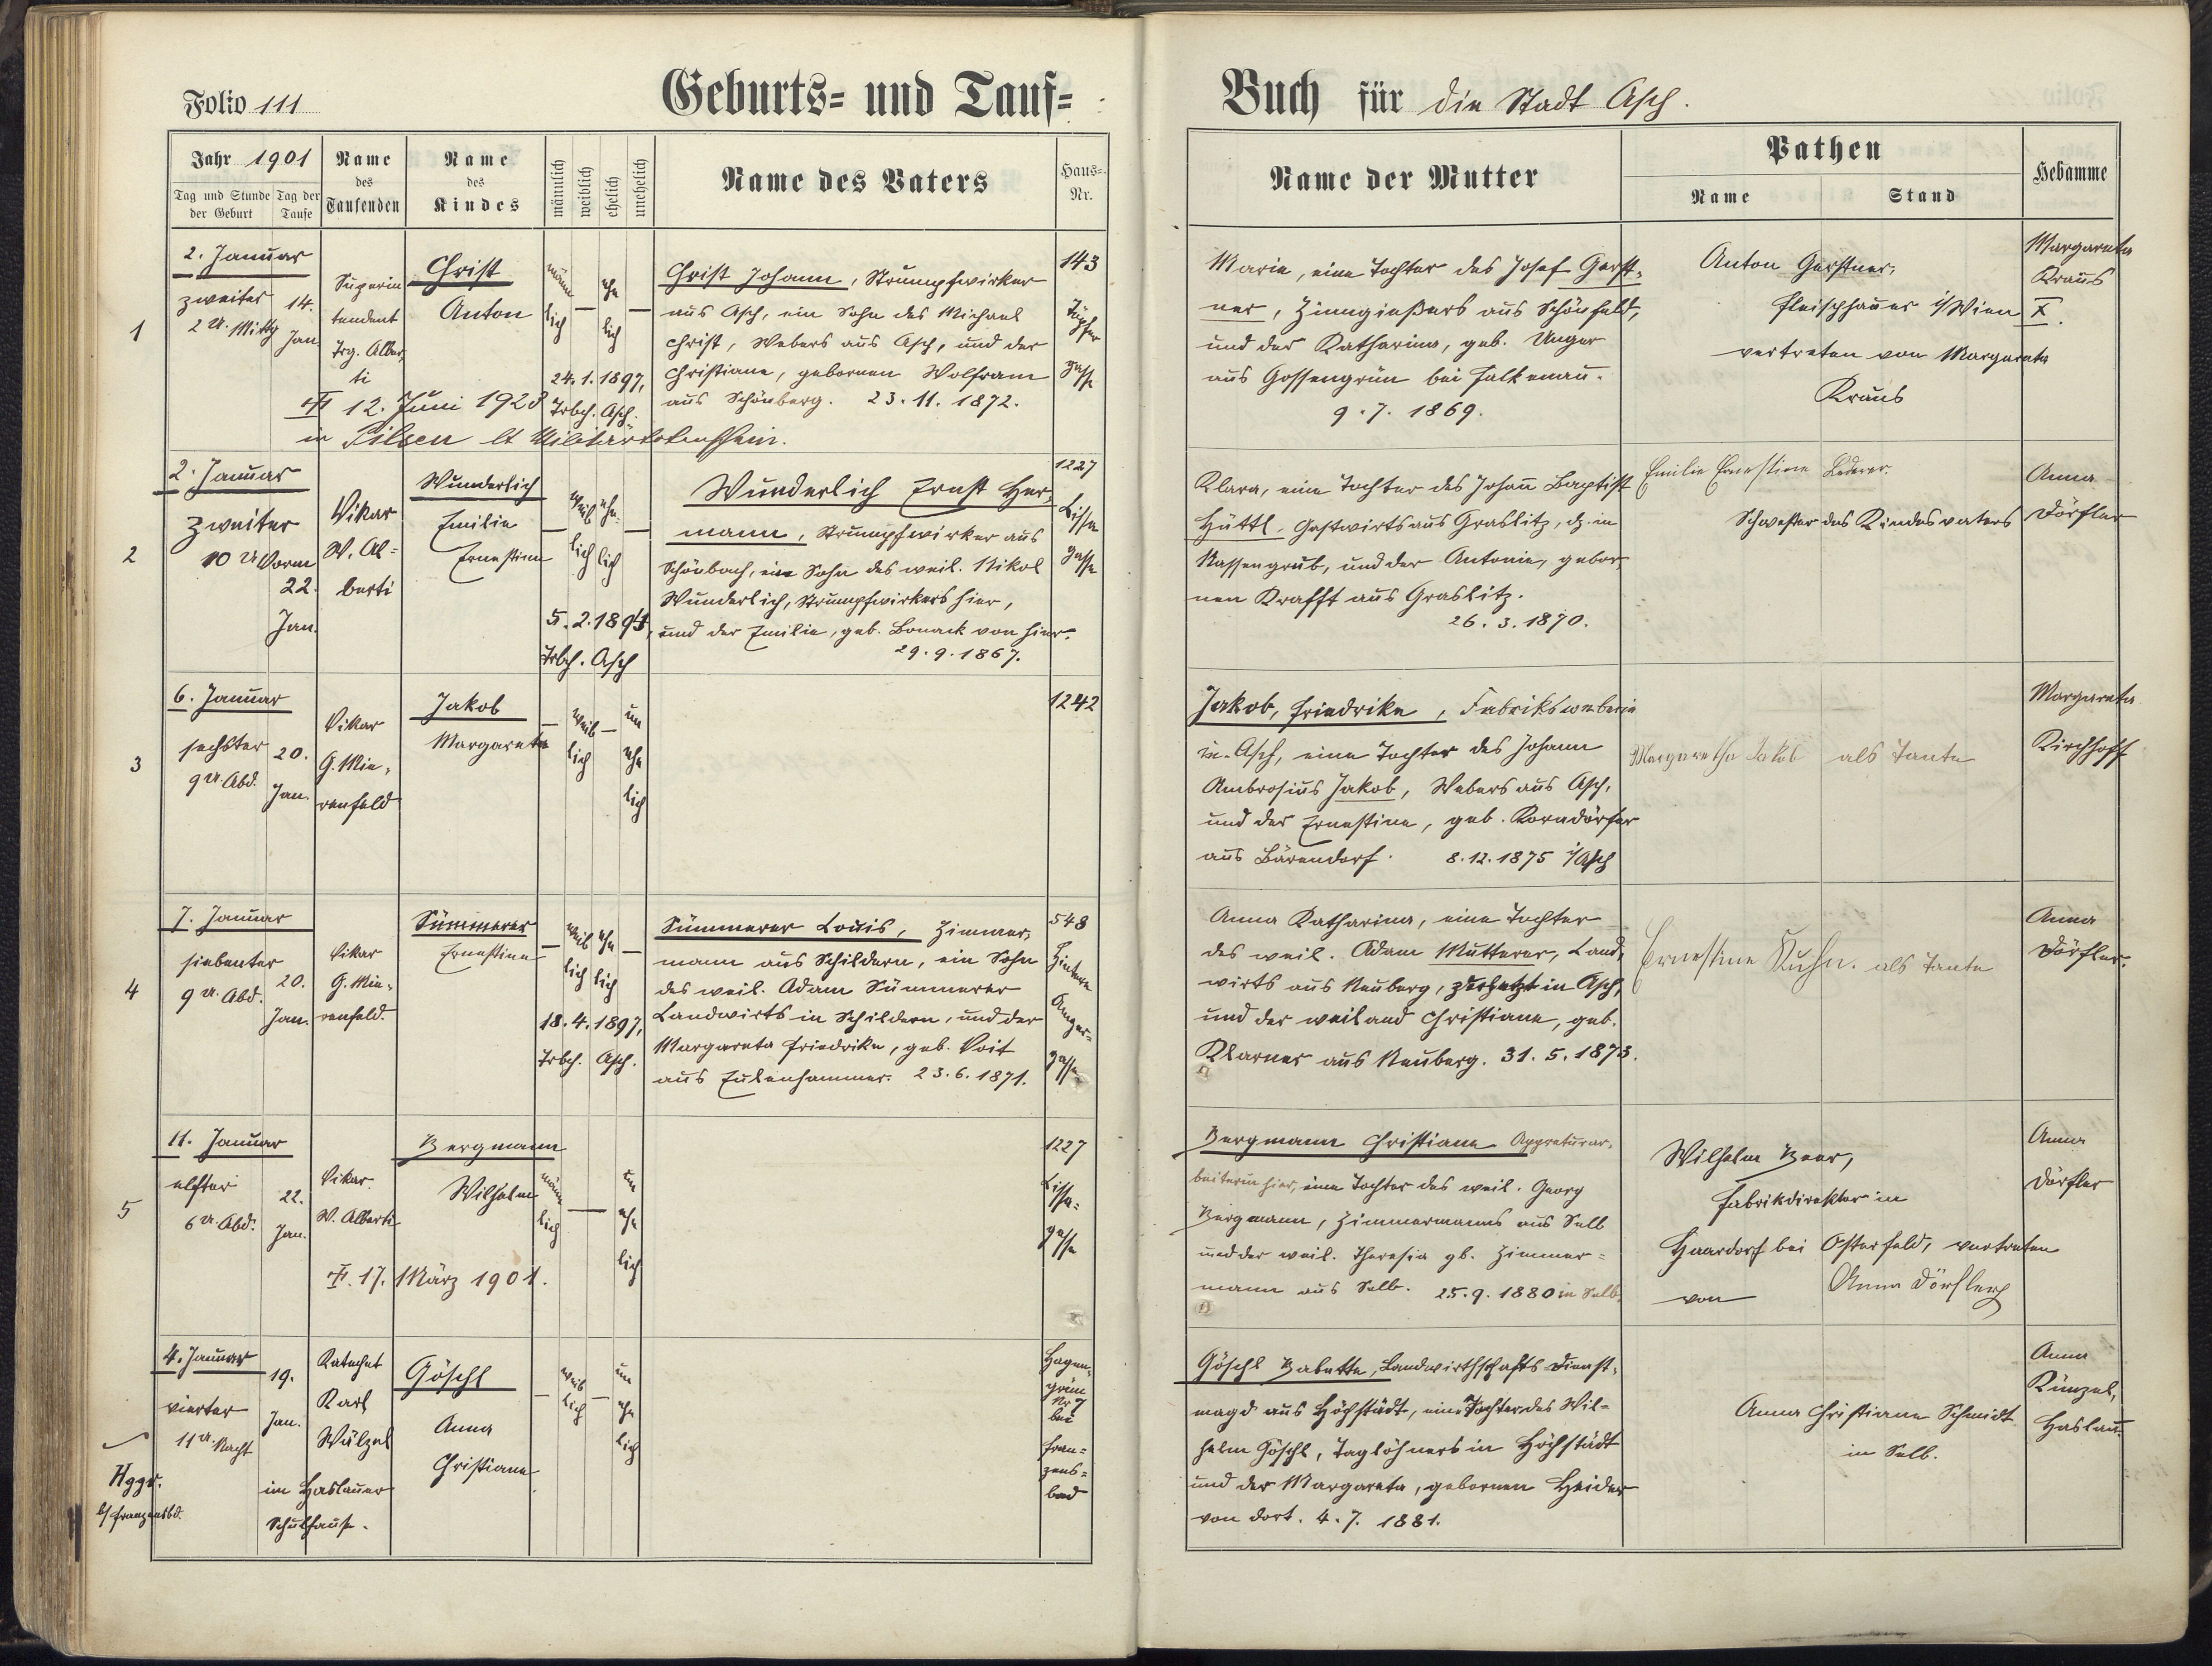 Folio 111
Geburts= und Tauf=
Buch für die Stadt Asch.
Jahr 1901
Tag und Stunde der Geburt
Tag der Taufe
Name des Taufenden
Name des Kindes
männlich
weiblich
ehelich
unehelich
Name des Vaters
Haus=Nr.
Name der Mutter
Pathen
Name
Stand
Hebamme
1
2. Januar
zweiter
2 U. Mittg
14.
Jan
Superin
tendent
Trg. Alber,
ti
Christ
Anton
männ
lich
—
ehe
lich
—
24. 1. 1897,
Trbch. Asch.
Christ Johann, Strumpfwirker
aus Asch, ein Sohn des Michael
Christ, Webers aus Asch, und der
Christiane, gebornen Wolfram
aus Schönberg. 23. 11. 1872.
143
Töpfer
gasse
12. Juni 1928
in Pilsen lt Militärtotenschein.
Marie, eine Tochter des Josef Gerst=
ner, Zinngießers aus Schönfeld,
und der Katharina, geb. Unger
aus Gossengrün bei Falkenau.
9. 7. 1869.
Anton Gerstner,
Fleischhauer i/Wien
vertreten von Margareta
Kraus
Margareta
Kraus
X.
2
2. Januar
zweiter
10 U Vorm
22.
Jan.
Vikar
W. Al=
berti
Wunderlich
Emilie
Ernestine
—
weib
lich
ehe-
lich
—
5. 2. 1894,
Trbch. Asch
Wunderlich Ernst Her=
mann, Strumpfwirker aus
Schönbach, ein Sohn des weil. Nikol
Wunderlich, Strumpfwirkers hier,
und der Emilie, geb. Bonack von hier.
29. 9. 1867.
1227
Lisse
gasse
Klara, eine Tochter des Johann Baptist
Hüttl, Gastwirts aus Graslitz, dz. in
Nassengrub, und der Antonie, gebor,
nen Krafft aus Graslitz.
26. 3. 1870.
Emilie Ernestine Lederer.
Schwester des Kindesvaters
Anna
Dörfler
3
6. Januar
sechster
9 U. Abd.
20.
Jan.
Vikar
G. Mie,
renfeld
Jakob
Margareta
—
weib
lich
—
un
ehe
lich
1242
Jakob, Friedrike, Fabriksweberin
in Asch, eine Tochter des Johann
Ambrosius Jakob, Webers aus Asch,
und der Ernestine, geb. Korndörfer
aus Bärendorf. 8. 12. 1875 i/Asch
Margaretha Jakob als Tante
Margareta
Kirchhoff
4
7. Januar
siebenter
9 U. Abd.
20.
Jan.
Vikar
G. Mie,
renfeld.
Sümmerer
Ernestine
—
weib
lich
ehe
lich
—
18. 4. 1897,
Trbch. Asch.
Sümmerer Louis, Zimmer,
mann aus Schildern, ein Sohn
des weil. Adam Sümmerer
Landwirts in Schildern, und der
Margareta Friedrike, geb. Voit
aus Eulenhammer. 23. 6. 1871.
548
Hintere
Anger-
gasse
Anna Katharina, eine Tochter
des weil. Adam Mutterer, Land,
wirts aus Neuberg, zuletzt in Asch,
und der weiland Christiane, geb.
Klarner aus Neuberg. 31. 5. 1873.
Ernestine Kuhn. als Tante
Anna
Dörfler.
5
11. Januar
elfter
6 U. Abd.
22.
Jan.
Vikar
W. Alberti
Bergmann
Wilhelm
männ
lich
—
un
ehe
lich
17. März 1901.
1227
Lisse-
gasse
Bergmann Christiane Appreturar,
beiterin hier, eine Tochter des weil. Georg
Bergmann, Zimmermanns aus Selb
und der weil. Theresia gb. Zimmer=
mann aus Selb. 25. 9. 1880 in Selb.
Wilhelm Beer,
Fabrikdirektor in
Haardorf bei Osterfeld, vertreten
von Anna Dörfler
Anna
Dörfler
4. Januar
vierter
11 U. Nacht
19.
Jan.
Hggr.
b/ Franzensbd.
Katechet
Karl
Wälzel
im Haslauer
Schulhause.
Göschl
Anna
Christiane
—
weib
lich
—
un
ehe
lich
Hagen,
grün
Nr 7
bei
Fran=
zens=
bad
Göschl Babette, Landwirthschafts-Dienst,
magd aus Höchstädt, eine Tochter des Wil=
helm Göschl, Taglöhners in Höchstädt
und der Margareta, gebornen Heider
von dort. 4. 7. 1881.
Anna Christiane Schmidt
in Selb.
Anna
Künzel,
Haslau.